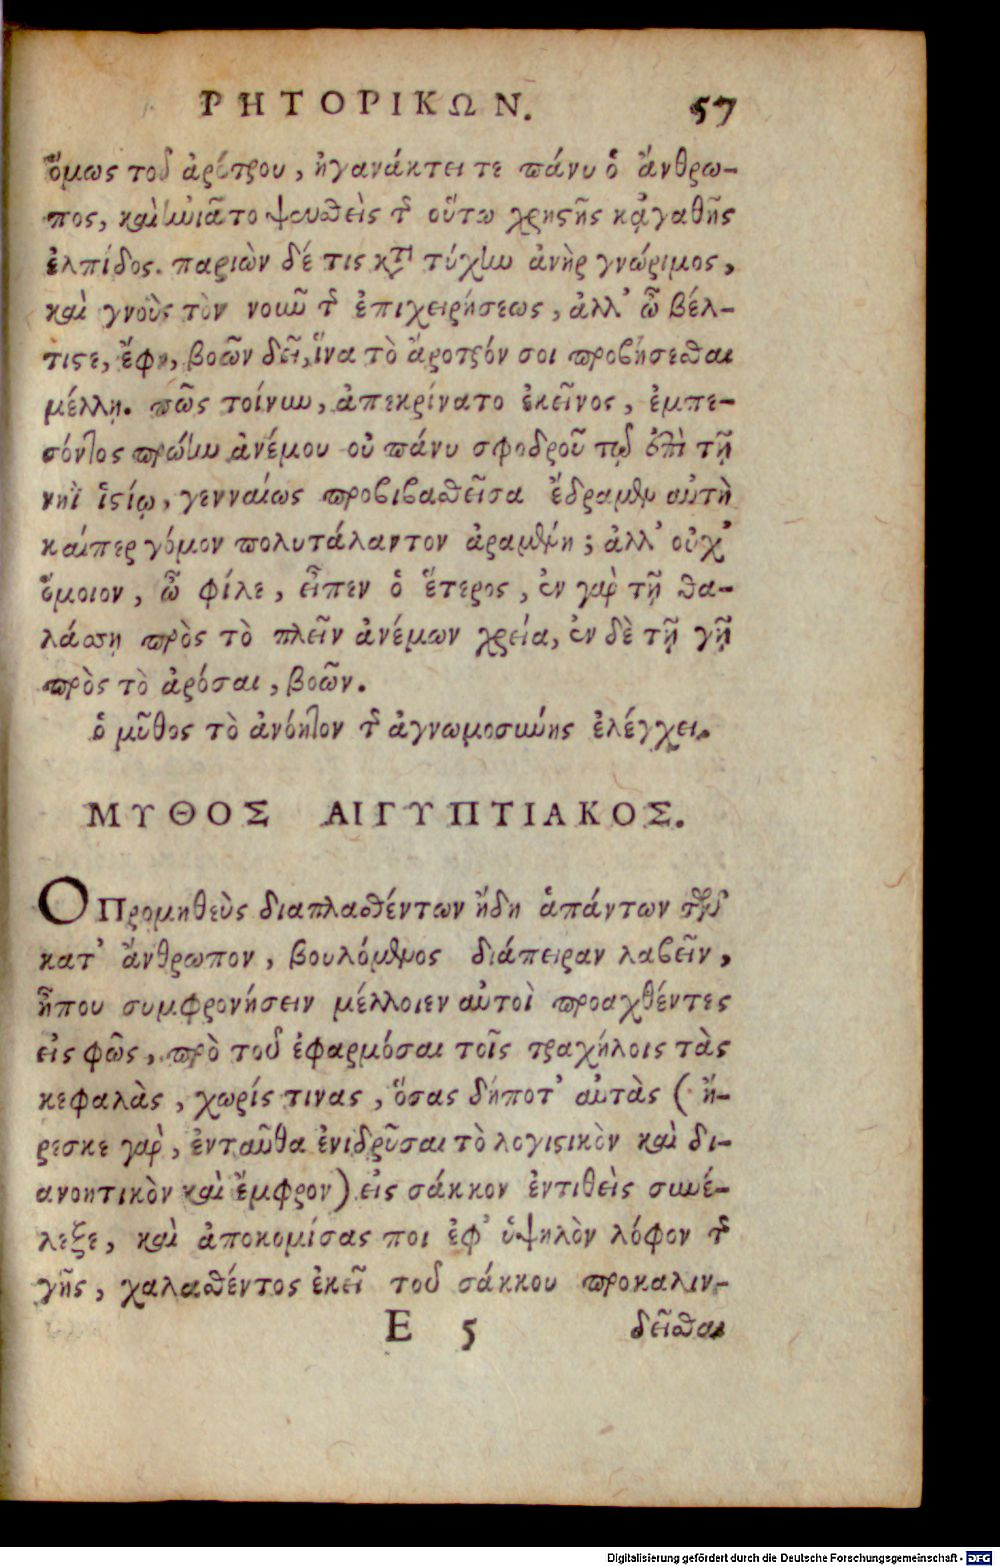 ΡΗΤΟΡΙΚΩΝ. 57
ὅμως τοῦ ἀρότρου, ἠγανάκτει τε πάνυ ὁ ἄνθρω-
πος, καὶ ἠνιᾶτο ψευσθεὶς τῆς οὕτω χρηστῆς κἀγαθῆς
ἐλπίδος. παριὼν δέ τις κατὰ τύχην ἀνὴρ γνώριμος,
καὶ γνοὺς τὸν νοῦν τῆς ἐπιχειρήσεως, ἀλλ' ὦ βέλ-
τιστε, ἔφη, βοῶν δεῖ, ἵνα τὸ ἄροτρόν σοι προβήσεσθαι
μέλλῃ. πῶς τοίνυν, ἀπεκρίνατο ἐκεῖνος, ἐμπε-
σόντος πρώην ἀνέμου οὐ πάνυ σφοδροῦ τῷ ἐπὶ τῇ
νηῒ ἱστίῳ, γενναίως προβιβασθεῖσα ἔδραμεν αὐτὴ
καίπερ γόμον πολυτάλαντον ἀραμένη; ἀλλ' οὐχ'
ὅμοιον, ὦ φίλε, εἶπεν ὁ ἕτερος, ἐν γὰρ τῇ θα-
λάσσῃ πρὸς τὸ πλεῖν ἀνέμων χρεία, ἐν δὲ τῇ γῇ
πρὸς τὸ ἀρόσαι, βοῶν.
ὁ μῦθος τὸ ἀνόητον τῆς ἀγνωμοσύνης ἐλέγχει.
ΜΥΘΟΣ ΑΙΓΥΠΤΙΑΚΟΣ.
Ο Προμηθεὺς διαπλασθέντων ἤδη ἁπάντων τῶν
κατ' ἄνθρωπον, βουλόμενος διάπειραν λαβεῖν,
ἦπου συμφρονήσειν μέλλοιεν αὐτοὶ προαχθέντες
εἰς φῶς, πρὸ τοῦ ἐφαρμόσαι τοῖς τραχήλοις τὰς
κεφαλὰς, χωρίς τινας, ὅσας δήποτ' αὐτὰς (ἤ-
ρεσκε γὰρ, ἐνταῦθα ἐνιδρῦσαι τὸ λογιστικὸν καὶ δι-
ανοητικὸν καὶ ἔμφρον) εἰς σάκκον ἐντιθεὶς συνέ-
λεξε, καὶ ἀποκομίσας ποι ἐφ' ὑψηλὸν λόφον τῆς
γῆς, χαλασθέντος ἐκεῖ τοῦ σάκκου προκαλιν-
E 5 δεῖσθαι
Digitalisierung gefördert durch die Deutsche Forschungsgemeinschaft - DFG